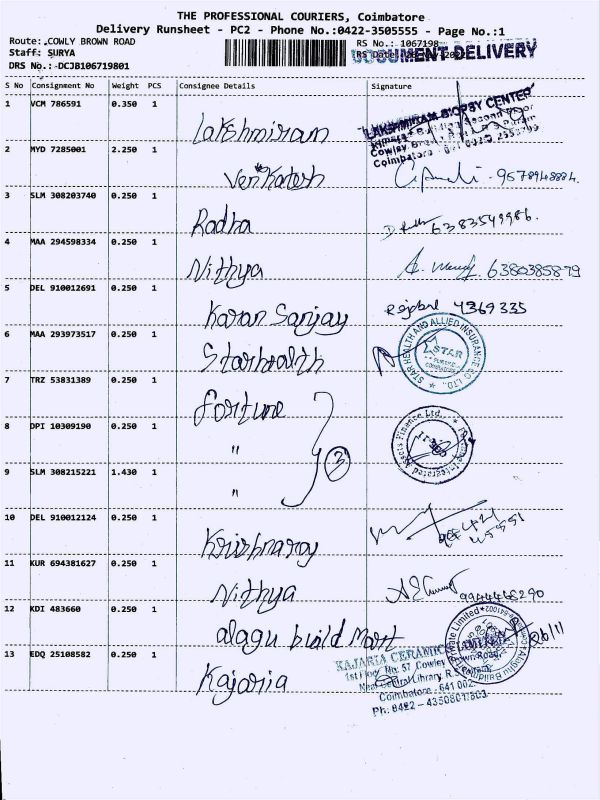 THE PROFESSIONAL COURIERS, Coimbatore
Delivery Runsheet - PC2 - Phone No.:0422-3505555 - Page No.:1
Route: COWLY BROWN ROAD
RS No.: 1067198
Staff: SURYA
RS Date:
DOCUMENT DELIVERY
DRS No.:-DCJB106719801
S No Consignment No Weight PCS Consignee Details Signature
1 VCM 786591 0.350 1 Lakshmiram
LAKSHMIRAM BIOPSY CENTER
Second Floor
Cowley Brown
Coimbatore
2 MYD 7285001 2.250 1 Venkatesh 9578948884.
3 SLM 308203740 0.250 1 Radha 6383549986.
4 MAA 294598334 0.250 1 Nithya 6380385879
5 DEL 910012691 0.250 1 Karan Sanjay 4369335
6 MAA 293973517 0.250 1 Starhealth
STAR HEALTH AND ALLIED INSURANCE CO. LTD.,
STAR
7 TRZ 53831389 0.250 1 fortune
8 DPI 10309190 0.250 1 "
3
Integrated Assets Finance Ltd.,
9 SLM 308215221 1.430 1 "
10 DEL 910012124 0.250 1 Krishnaroy
11 KUR 694381627 0.250 1 Nithya 9944468290
12 KDI 483660 0.250 1 alagu build Mart
13 EDQ 25108582 0.250 1 Kajaria
KAJARIA CERAMICS LIMITED
1st Floor, No: 57, Cowley Brown Road,
Near Central Library, R.S.Puram,
Coimbatore - 641 002.
Ph: 0422 - 4350801/803